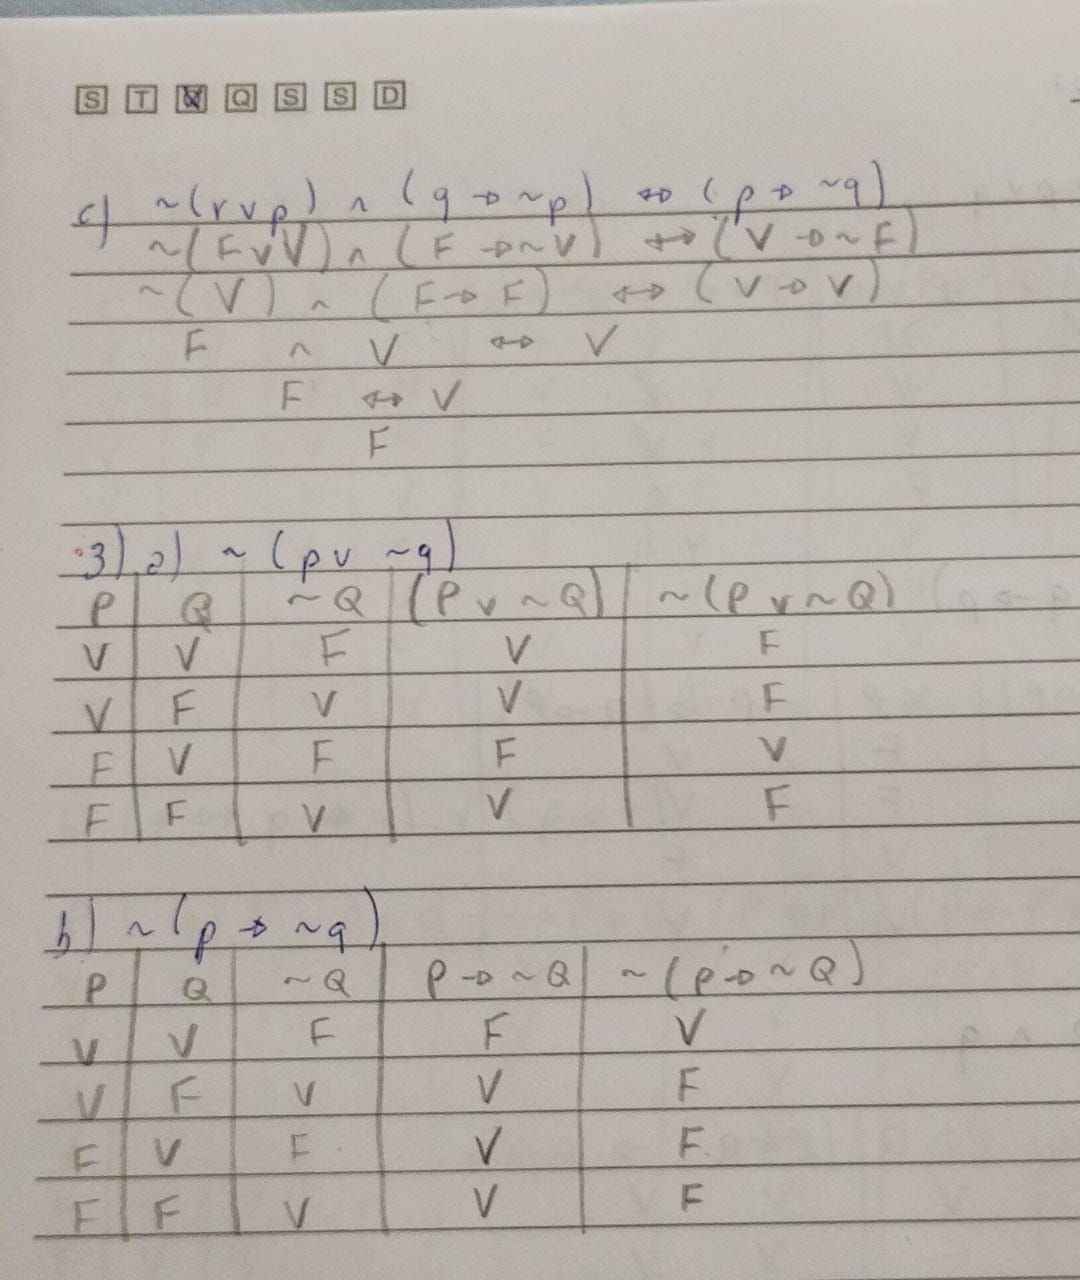 S T Q Q S S D
c) ~(r∨p) ∧ (q → ~p) ↔ (p → ~q)
~(F∨V) ∧ (F → ~V) ↔ (V → ~F)
~(V) ∧ (F → F) ↔ (V → V)
F ∧ V ↔ V
F ↔ V
F
3) a) ~(p ∨ ~q)
P Q ~Q (P ∨ ~Q) ~(P ∨ ~Q)
V V F V F
V F V V F
F V F F V
F F V V F
b) ~(p → ~q)
P Q ~Q P → ~Q ~(p → ~Q)
V V F F V
V F V V F
F V F V F
F F V V F